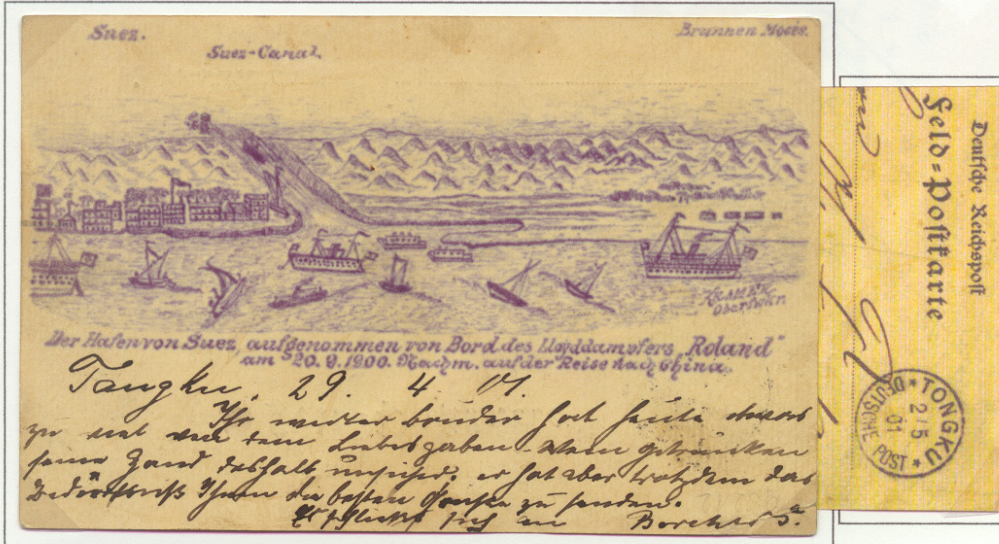 Suez.
Brunnen Mosis.
Suez-Canal.
KRAMER
Der Hafen von Suez, aufgenommen von Bord des Lloyddampfers „Roland"
am 20. 9. 1900. Nachm. auf der Reise nach China.
Tongku, 29. 4. 01.
Ihr bruder hat heute
zu viel von dem Liebesgaben-Wein getrunken
seine Hand deshalb unsicher. er hat aber trotzdem das
Bedürfniß Ihnen die besten Grüße zu senden.
Es schließt sich an
Deutsche Reichspost
Feld-Postkarte
TONGKU
2/5
01
DEUTSCHE POST